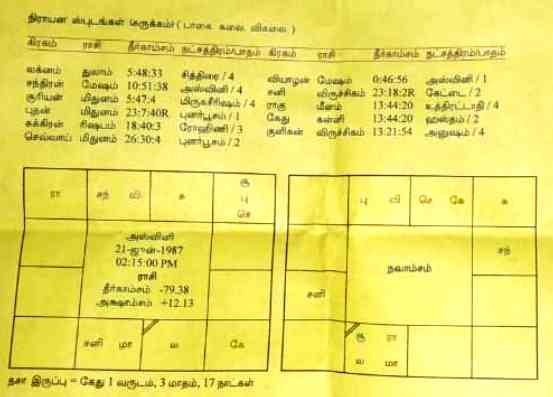 நிராயன ஸ்புடங்கள் சுருக்கம் ( பாகை. கலை. விகலை. )
கிரகம் ராசி தீர்காம்சம் நட்சத்திரம்/பாதம் கிரகம் ராசி தீர்காம்சம் நட்சத்திரம்/பாதம்
லக்னம் துலாம் 5:48:33 சித்திரை / 4 வியாழன் மேஷம் 0:46:56 அஸ்வினி / 1
சந்திரன் மேஷம் 10:51:38 அஸ்வினி / 4 சனி விருச்சிகம் 23:18:2R கேட்டை / 2
சூரியன் மிதுனம் 5:47:4 மிருகசிரிஷம் / 4 ராகு மீனம் 13:44:20 உத்திரட்டாதி / 4
புதன் மிதுனம் 23:7:40R புனர்பூசம் / 1 கேது கன்னி 13:44:20 ஹஸ்தம் / 2
சுக்கிரன் ரிஷபம் 18:40:3 ரோஹிணி / 3 குளிகன் விருச்சிகம் 13:21:54 அனுஷம் / 4
செவ்வாய் மிதுனம் 26:30:4 புனர்பூசம் / 2
ரா சந் வி சு சூ பு செ
அஸ்வினி
21-ஜுன்-1987
02:15:00 PM
ராசி
தீர்காம்சம் -79.38
அக்ஷாம்சம் +12.13
சனி மா ல கே
பு வி செ கே சு
சந்
நவாம்சம்
சனி
சூ ரா
ல மா
தசா இருப்பு = கேது 1 வருடம், 3 மாதம், 17 நாட்கள்